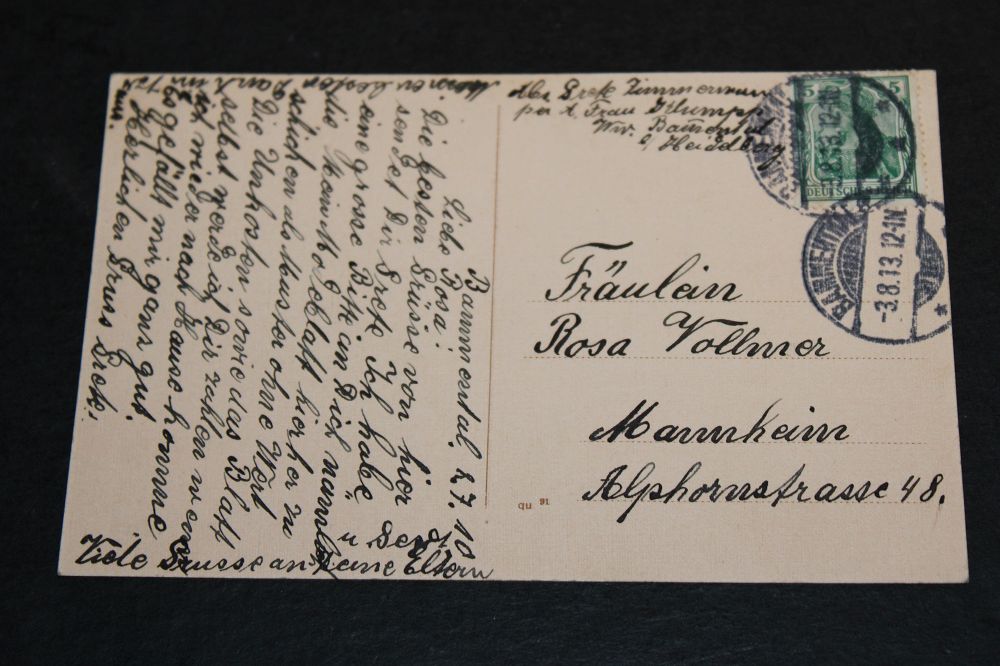 Abs. Grete Zimmermann
per A. Frau Stumpf
Ww. Bammental
b/ Heidelberg
5 5
DEUTSCHES REICH
BAMMENTAL
-3.8.13.12-1N
BAMMENTAL
-3.8.13.12-1N
Fräulein
Rosa Vollmer
Mannheim
Alphornstrasse 48.
qu 91
Bammental. 2.7.10
Liebe Rosa!
Die besten Grüsse von hier
sendet Dir Grete. Ich habe
eine grosse Bitte an Dich nämlich
die Heimat Blatt hierher zu
schicken als Muster ohne Wert
Die Unkosten sowie das Blatt
selbst werde ich Dir zahlen wenn
ich wieder nach Hause komme
Es gefällt mir ganz gut
Herzlichen Gruss Grete.
Besten Dank im
Viele Grüsse an Deine Eltern
u. Gesch